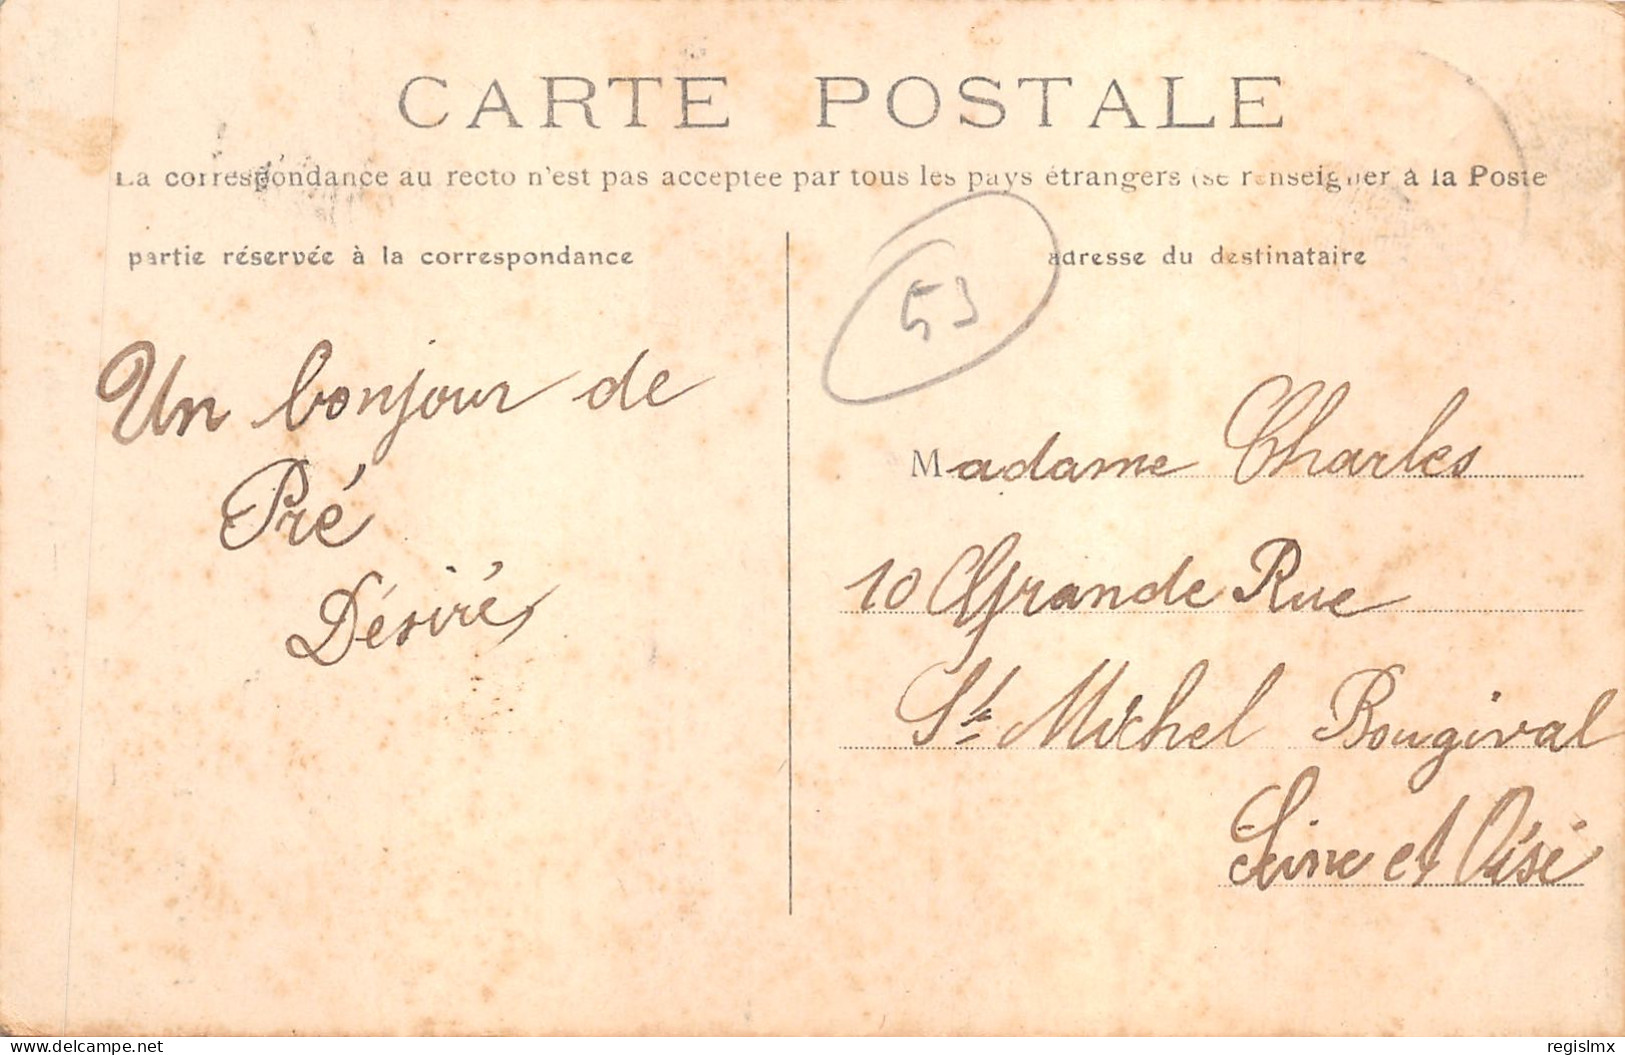 CARTE POSTALE
La correspondance au recto n'est pas acceptee par tous les pays étrangers (se renseigner à la Poste
partie réservée à la correspondance
adresse du destinataire
53
Un bonjour de
Pré
Désiré
Madame Charles
10 Grande Rue
St Michel Bougival
Seine et Oise
delcampe.net
regislmx